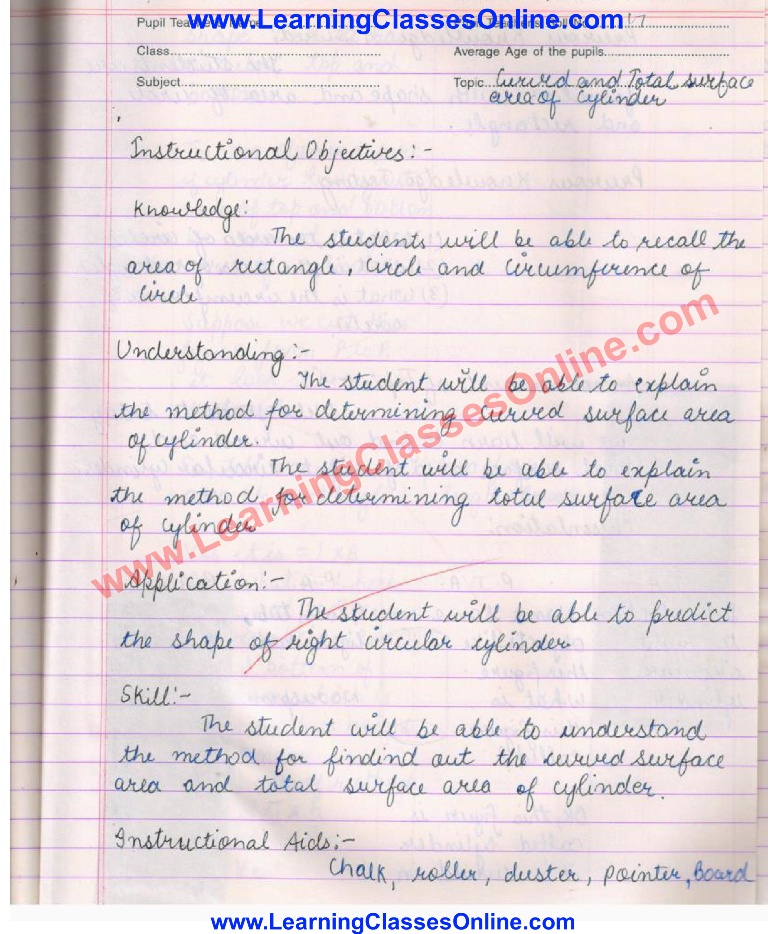 www.LearningClassesOnline.com
Pupil Teacher's Name
Class
Average Age of the pupils
Subject
Topic Curvrd and Total surface
area of Cylinder
Instructional Objectives:-
Knowledge:
The students will be able to recall the
area of rectangle, circle and circumference of
circle
Understanding:-
The student will be able to explain
the method for determining curved surface area
of cylinder.
The student will be able to explain
the method for determining total surface area
of cylinder
Application:-
The student will be able to predict
the shape of right circular cylinder
Skill:-
The student will be able to understand
the method for findind out the curved surface
area and total surface area of cylinder.
Instructional Aids:-
Chalk, roller, duster, pointer, Board
www.LearningClassesOnline.com
www.LearningClassesOnline.com